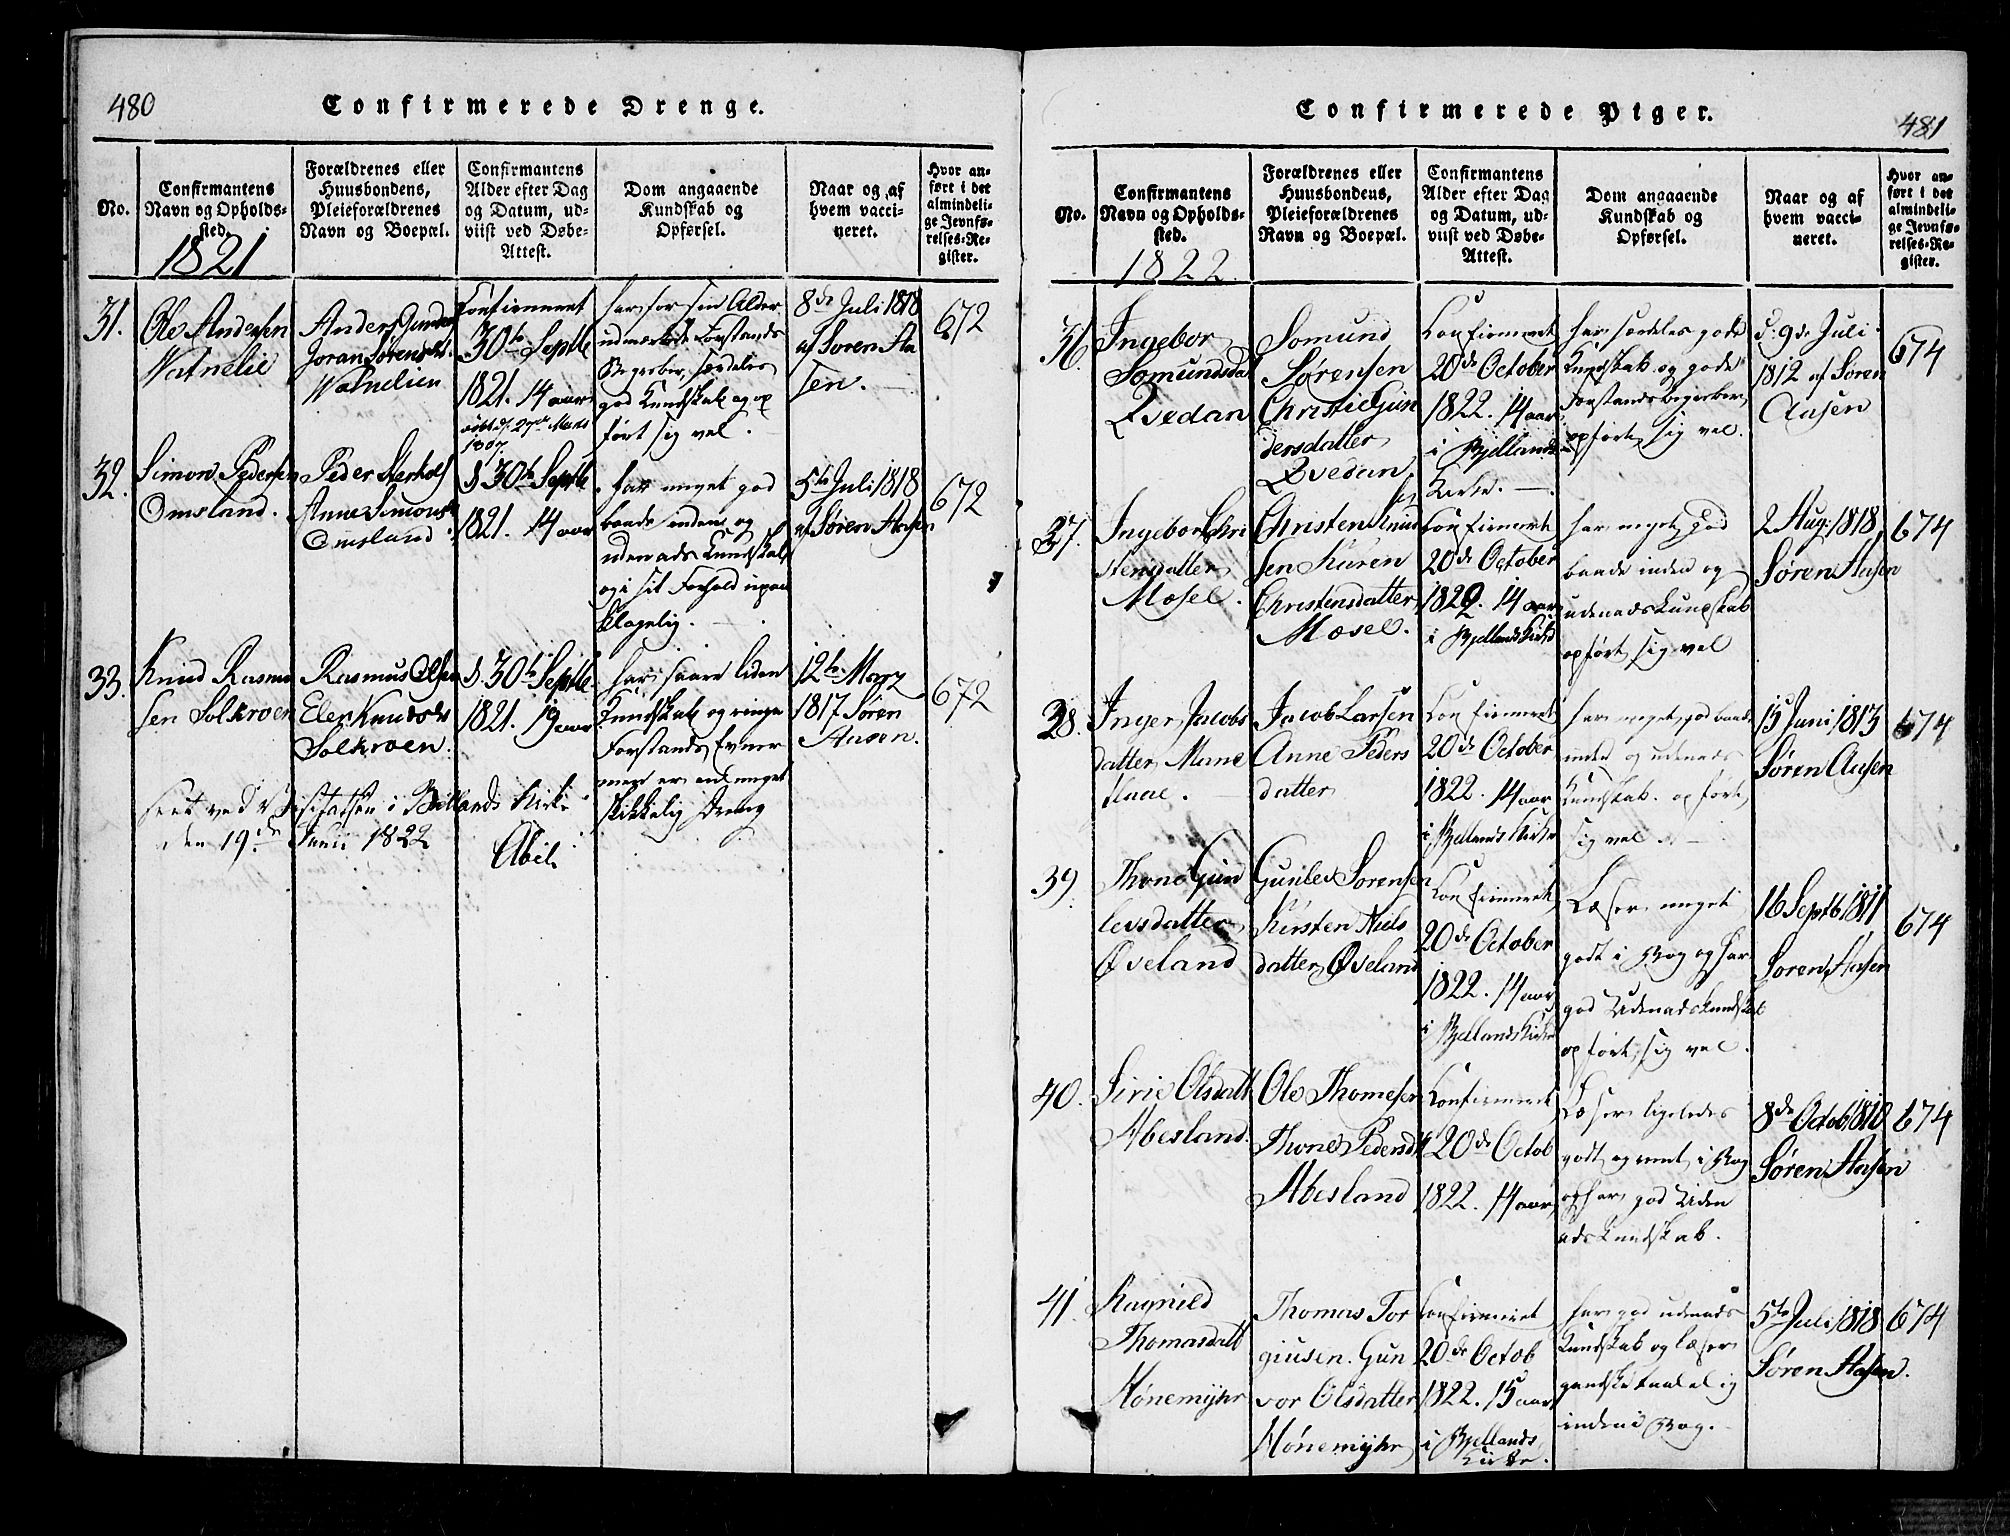 480
Confirmerede Drenge.
No.
Confirmantens
Navn og Opholds-
sted.
1821
Forældrenes eller
Huusbondens,
Pleieforældrenes
Navn og Boepæl.
Confirmantens
Alder efter Dag
og Datum, ud-
viist ved Døbe-
Attest.
Dom angaaende
Kundskab og
Opførsel.
Naar og af
hvem vacci-
neret.
Hvor an-
ført i det
almindeli-
ge Jevnfø-
relses-Re-
gister.
31.
Ole Andersen
Vatnelie
Anders
Joran Sørensdt.
Vatnelien
Confirmeret
30te Septbr
1821. 14 aar
født d. 27de Marts
1807.
har for sin Alder
udmærkede Forstands
Begreber, særdeles
god Kundskab og op
ført sig vel.
8de Juli 1818
af Søren Aa
sen.
672
32.
Simon Pedersen
Omsland.
Peder
Anne Simons
Omsland
d. 30te Septbr
1821. 14 aar
har meget god
baade inden og
udenads Kundskab
og i sit Forhold upaa
klagelig.
5te Juli 1818
af Søren Aasen
672
33.
Knud Rasmu
sen Solkroen
Rasmus Olsen
Eler Knudsdt
Solkroen.
d. 30te Septbr.
1821. 19 aar
har saare liden
Kundskab og ringe
Forstands Evner
men er en meget
skikkelig Dreng
12te Marz
1817 Søren
Aasen.
672
seet ved Visitatsen i Bellands Kirke
den 19de Juni 1822
Abel
Confirmerede Piger.
481
No.
Confirmantens
Navn og Opholds-
sted.
1822.
Forældrenes eller
Huusbondens,
Pleieforældrenes
Navn og Boepæl.
Confirmantens
Alder efter Dag
og Datum, ud-
viist ved Døbe-
Attest.
Dom angaaende
Kundskab og
Opførsel.
Naar og af
hvem vacci-
neret.
Hvor an-
ført i det
almindeli-
ge Jevnfø-
relses-Re-
gister.
36.
Ingebor
Somundsdat
Qvedan
Somund
Sørensen
Christie Gun
dersdatter
Qvedan
Confirmeret
20de October
1822. 14 aar
i Bjellands
Kirke.
har særdeles gode
Kundskab og gode
Forstands begreber,
opført sig vel.
d. 9de Juli
1812 af Søren
Aasen
674
37.
Ingebor Chri
stensdatter
Mosel.
Christen Knud
sen Karen
Christensdatter
Mæsel.
Confirmeret
20de October
1822. 14 aar
i Bjellands Kirke
har meget god
baade inden og
udenads Kundskab
opført sig vel
2 Aug. 1818,
Søren Aasen
674
38.
Inger Jacobs
datter Mane
Haae.
Jacob Larsen
Anne Peders
datter
Confirmeret
20de October
1822. 14 aar
i Bjellands Kirke
har meget god baade
inden og udenads
Kundskab. opført
sig vel.
15 Juni 1813
Søren Aasen
674
39.
Thone Gun
levsdatter
Øveland
Gunlev Sørensen
Kirsten Niels
datter Øveland
Confirmeret
20de October
1822. 14 aar
i Bjellands Kirke
Læser meget
godt i Bog og har
god Udenadskundskab
opført sig vel.
16 Septb. 1811
Søren Aasen
674
40.
Sirie Olsdatt
Abesland.
Ole Thomesen
Thone Pedersdt
Abesland
Confirmeret
20de Octob
1822. 14 aar
Læser ligeledes
godt og rent i Bog
og har god Uden
ads Kundskab.
8de Octob 1810
Søren Aasen
674
41.
Ragnild
Thomasdatt
Hønemyhr
Thomas Tor
giusen. Gun
vor Olsdatter
Hønemyhr
Confirmeret
20de Octob
1822. 15 aar
i Bjellands
Kirke.
har god udenads
Kundskab og læser
gandske taalelig
inden i Bog.
5te Juli 1818
Søren Aasen.
674